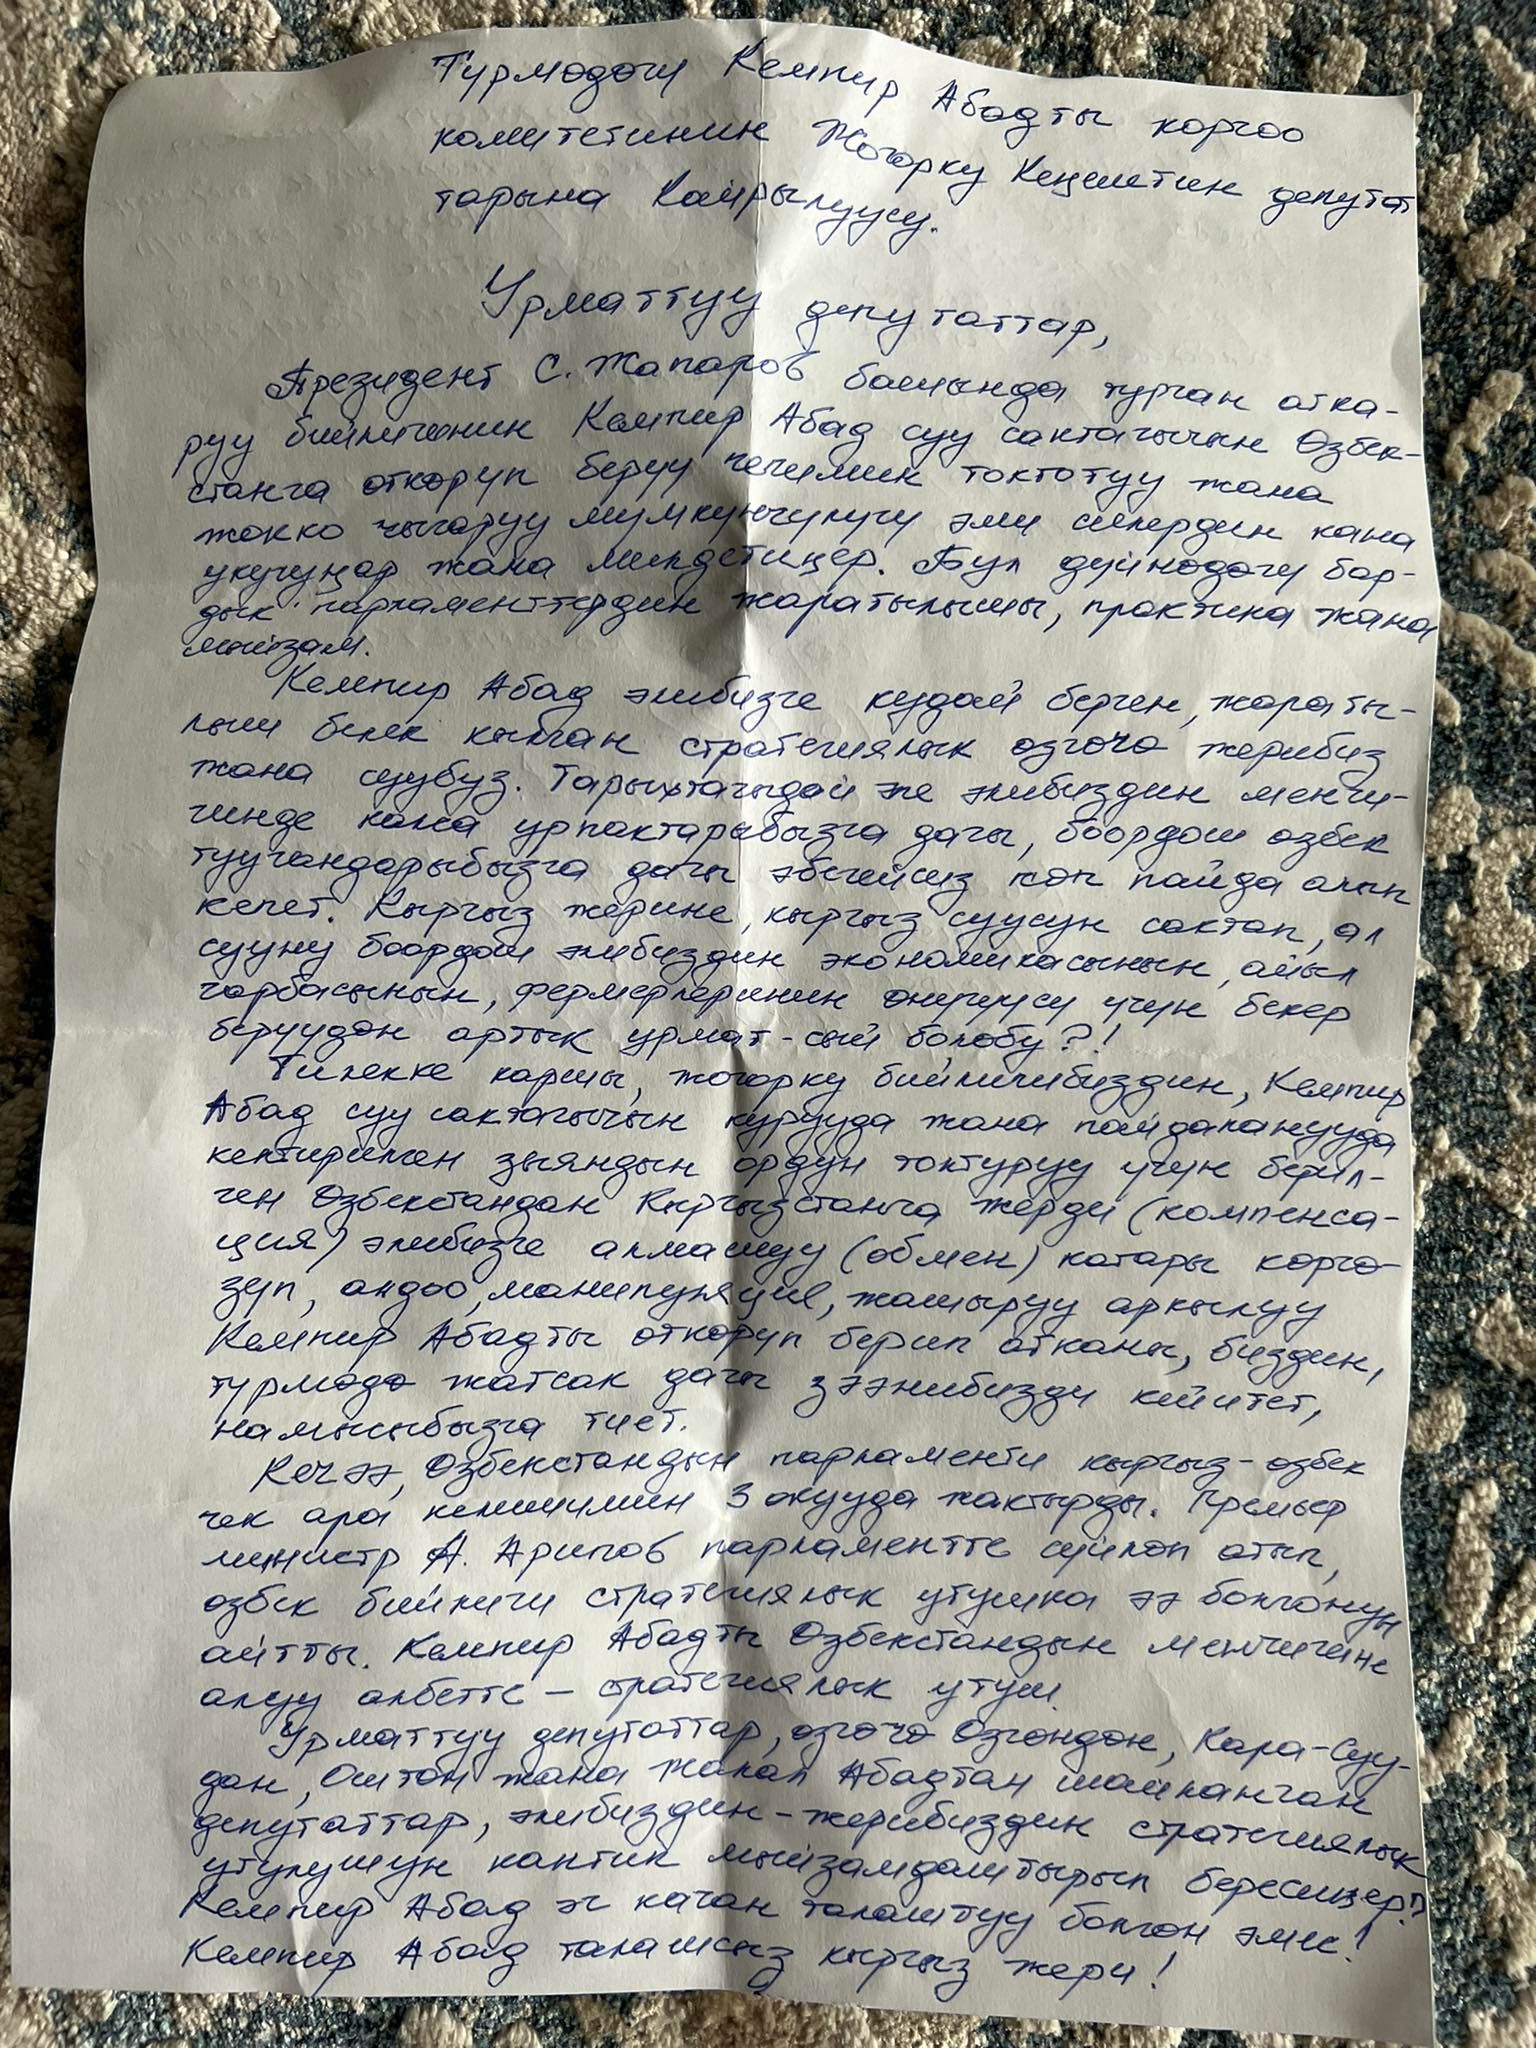 Түрмөдөгү Кемпир Абадты коргоо
комитетинин Жогорку Кеңештин депутат
тарына Кайрылуусу.
Урматтуу депутаттар,
Президент С. Жапаров башында турган атка-
руу бийлигинин Кемпир Абад суу сактагычын Өзбек-
станга өткөрүп берүү чечимин токтотуу жана
жокко чыгаруу мүмкүнчүлүгү эми силердин кана
укугуңар жана милдетиңер. Бул дүйнөдөгү бар-
дык парламенттердин жаратылышы, практика жана
мыйзам.
Кемпир Абад элибизге кудай берген, жараты-
лыш белек кылган стратегиялык өзгөчө жерибиз
жана суубуз. Тарыхтагыдай эле элибиздин менчи-
гинде кала урпактарыбызга дагы, боордош өзбек
туугандарыбызга дагы эбегейсиз көп пайда алып
келет. Кыргыз жерине, кыргыз суусун сактап, ал
сууну боордош элибиздин экономикасынын, айыл
чарбасынын, фермерлеринин өнүгүүсү үчүн бекер
берүүдөн артык урмат-сый болобу?!
Тилекке каршы, жогорку бийлигибиздин, Кемпир
Абад суу сактагычын курууда жана пайдаланууда
келтирилген зыяндын ордун толтуруу үчүн берил-
ген Өзбекстандан Кыргызстанга жерди (компенса-
ция) элибизге алмашуу (обмен) катары көргө-
зүп, алдоо, манипуляция, жашыруу аркылуу
Кемпир Абадты өткөрүп берип атканы, биздин,
түрмөдө жатсак дагы зээнибизди кейитет,
намысыбызга тиет.
Кечээ, Өзбекстандын парламенти кыргыз-өзбек
чек ара келишимин 3 окууда жактырды. Премьер
министр А. Арипов парламентте сүйлөп атып,
өзбек бийлиги стратегиялык утушка ээ болгонун
айтты. Кемпир Абадты Өзбекстандын менчигине
алуу албетте – стратегиялык утуш.
Урматтуу депутаттар, өзгөчө Өзгөндөн, Кара-Суу-
дан, Оштон жана Жалал Абадтан шайланган
депутаттар, элибиздин-жерибиздин стратегиялык
утулушун кантип мыйзамдаштырып бересиңер?
Кемпир Абад эч качан талаштуу болгон эмес!
Кемпир Абад талашсыз кыргыз жери!